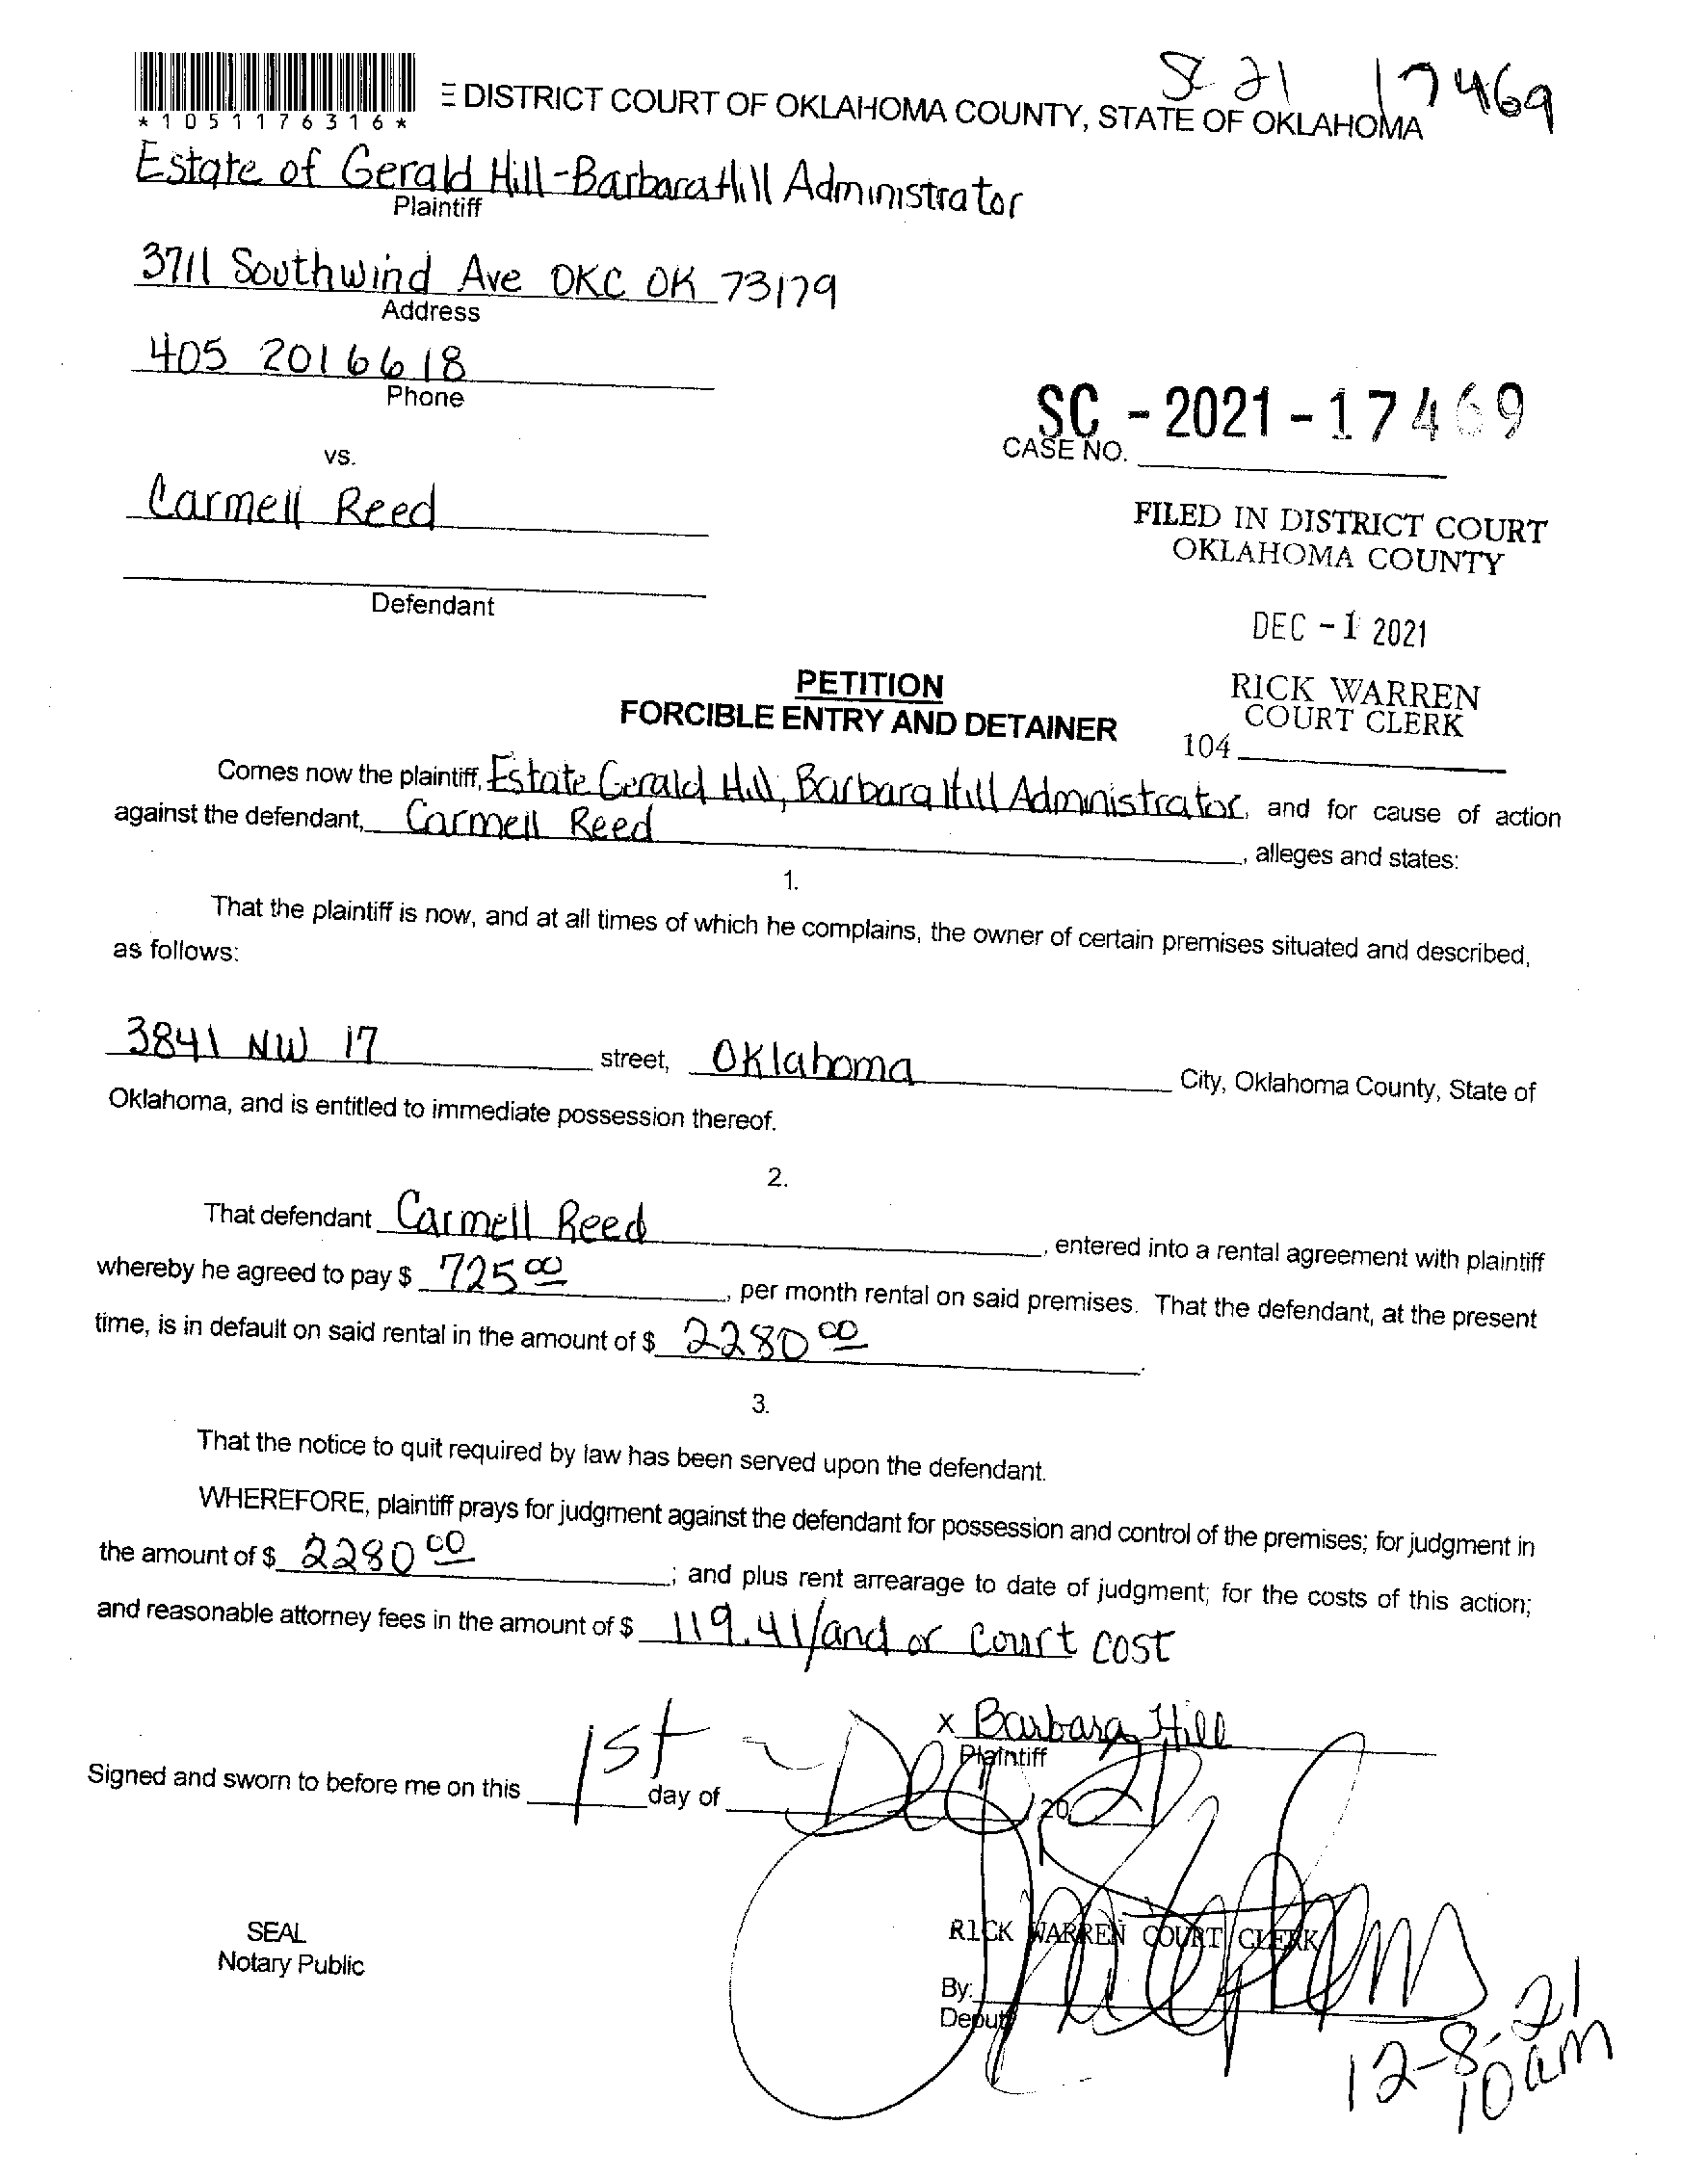 SC 21 17469
*1051176316*
E DISTRICT COURT OF OKLAHOMA COUNTY, STATE OF OKLAHOMA
Estate of Gerald Hill-Barbara Hill Administrator
Plaintiff
3711 Southwind Ave OKC OK 73179
Address
405 2016618
Phone
SC - 2021 - 17469
CASE NO.
vs.
Carmell Reed
FILED IN DISTRICT COURT
OKLAHOMA COUNTY
Defendant
DEC - 1 2021
RICK WARREN
COURT CLERK
104
PETITION
FORCIBLE ENTRY AND DETAINER
Comes now the plaintiff, Estate Gerald Hill, Barbara Hill Administrator, and for cause of action
against the defendant, Carmell Reed, alleges and states:
1.
That the plaintiff is now, and at all times of which he complains, the owner of certain premises situated and described,
as follows:
3841 NW 17 street, Oklahoma City, Oklahoma County, State of
Oklahoma, and is entitled to immediate possession thereof.
2.
That defendant Carmell Reed, entered into a rental agreement with plaintiff
whereby he agreed to pay $ 725 00, per month rental on said premises. That the defendant, at the present
time, is in default on said rental in the amount of $ 2280 00.
3.
That the notice to quit required by law has been served upon the defendant.
WHEREFORE, plaintiff prays for judgment against the defendant for possession and control of the premises; for judgment in
the amount of $ 2280 00; and plus rent arrearage to date of judgment; for the costs of this action;
and reasonable attorney fees in the amount of $ 119.41/and or court cost
x Barbara Hill
Plaintiff
Signed and sworn to before me on this 1st day of Dec, 2021
SEAL
Notary Public
RICK WARREN COURT CLERK
By:
Deputy
12-8-21
10am